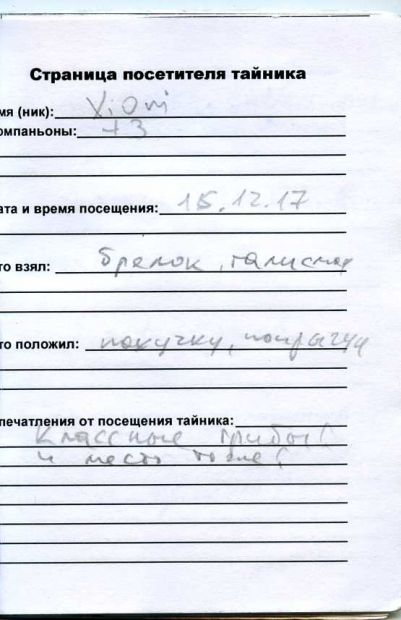 Страница посетителя тайника
мя (ник): ViOni
омпаньоны: +3
ата и время посещения: 15.12.17
то взял: брелок, талисман
то положил:
печатления от посещения тайника:
Классные грибы!
и место тоже!